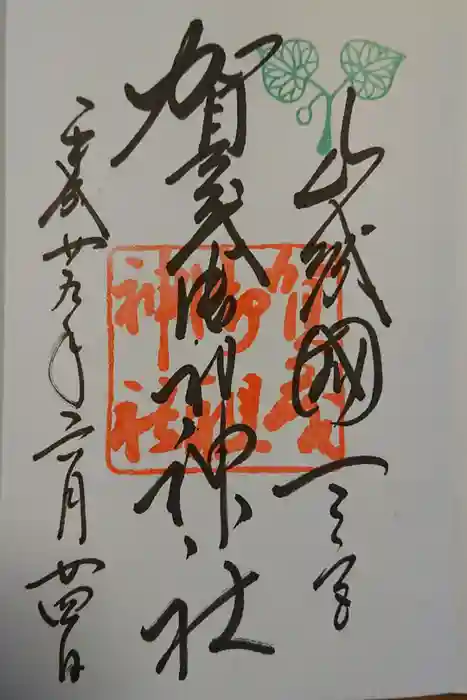 山城國一之宮
賀茂御祖神社
平成廿九年六月廿四日
賀茂
御祖
神社